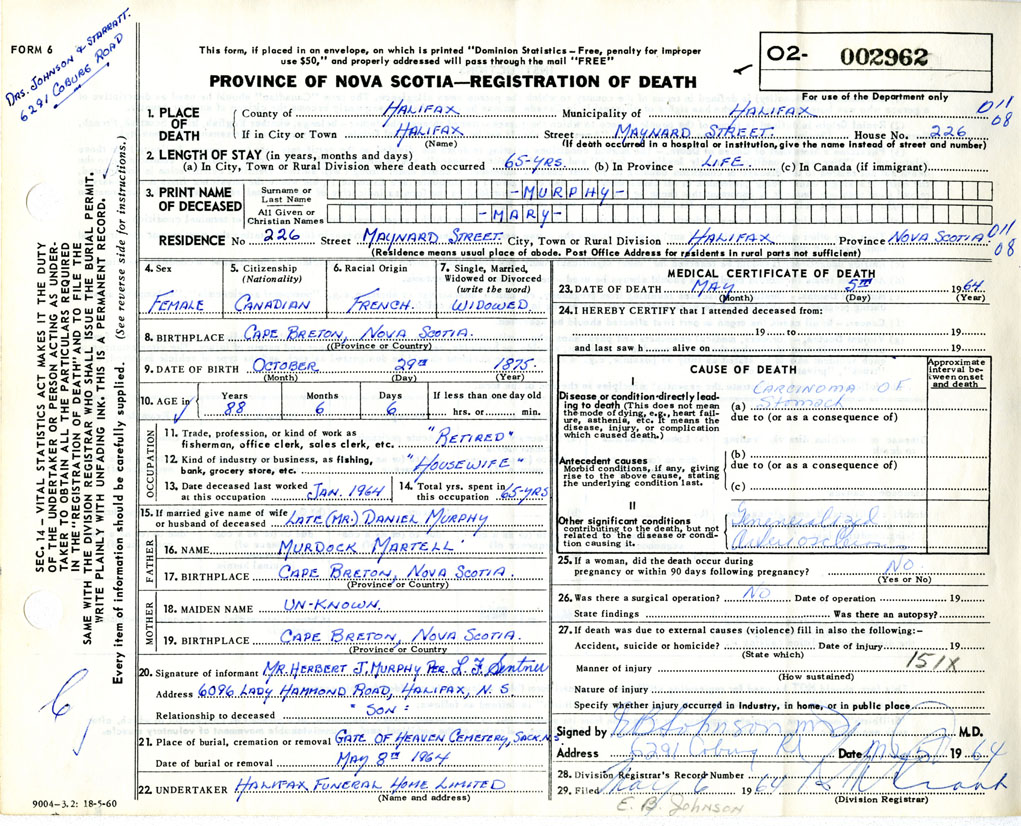 FORM 6
DRS. JOHNSON & STARRATT.
6291 COBURG ROAD
This form, if placed in an envelope, on which is printed "Dominion Statistics – Free, penalty for improper
use $50," and properly addressed will pass through the mail "FREE"
PROVINCE OF NOVA SCOTIA—REGISTRATION OF DEATH
02- 002962
For use of the Department only
011
08
1. PLACE OF DEATH
County of HALIFAX Municipality of HALIFAX
If in City or Town HALIFAX Street MAYNARD STREET. House No. 226
(Name) (If death occurred in a hospital or institution, give the name instead of street and number)
2. LENGTH OF STAY (in years, months and days)
(a) In City, Town or Rural Division where death occurred 65-YRS. (b) In Province LIFE. (c) In Canada (if immigrant)
3. PRINT NAME OF DECEASED
Surname or Last Name -MURPHY-
All Given or Christian Names -MARY-
RESIDENCE No 226 Street MAYNARD STREET. City, Town or Rural Division HALIFAX Province NOVA SCOTIA. 011
08
(Residence means usual place of abode. Post Office Address for residents in rural parts not sufficient)
4. Sex
FEMALE
5. Citizenship
(Nationality)
CANADIAN
6. Racial Origin
FRENCH.
7. Single, Married,
Widowed or Divorced
(write the word)
WIDOWED.
8. BIRTHPLACE CAPE BRETON, NOVA SCOTIA.
(Province or Country)
9. DATE OF BIRTH OCTOBER 29th 1875.
(Month) (Day) (Year)
10. AGE in Years Months Days If less than one day old
88 6 6 hrs. or min.
OCCUPATION
11. Trade, profession, or kind of work as
fisherman, office clerk, sales clerk, etc. "RETIRED"
12. Kind of industry or business, as fishing,
bank, grocery store, etc. "HOUSEWIFE"
13. Date deceased last worked
at this occupation JAN. 1964
14. Total yrs. spent in
this occupation 65-YRS
15. If married give name of wife
or husband of deceased LATE (MR.) DANIEL MURPHY
FATHER
16. NAME MURDOCK MARTELL
17. BIRTHPLACE CAPE BRETON, NOVA SCOTIA.
(Province or Country)
MOTHER
18. MAIDEN NAME UN-KNOWN.
19. BIRTHPLACE CAPE BRETON, NOVA SCOTIA.
(Province or Country
20. Signature of informant MR. HERBERT J. MURPHY PER. L. F. Sentner
Address 6096 LADY HAMMOND ROAD, HALIFAX, N. S
Relationship to deceased "SON"
21. Place of burial, cremation or removal GATE OF HEAVEN CEMETERY, SACK. N.S
Date of burial or removal MAY 8th 1964
22. UNDERTAKER HALIFAX FUNERAL HOME LIMITED
(Name and address)
9004–3.2: 18-5-60
MEDICAL CERTIFICATE OF DEATH
23. DATE OF DEATH MAY 5th 1964
(Month) (Day) (Year)
24. I HEREBY CERTIFY that I attended deceased from:
19 to 19
and last saw h alive on 19
CAUSE OF DEATH
Approximate
interval be-
tween onset
and death
I
Disease or condition directly lead-
ing to death (This does not mean
the mode of dying, e.g., heart fail-
ure, asthenia, etc. It means the
disease, injury, or complication
which caused death.)
(a) CARCINOMA OF
Stomach
due to (or as a consequence of)
Antecedent causes
Morbid conditions, if any, giving
rise to the above cause, stating
the underlying condition last.
(b)
due to (or as a consequence of)
(c)
II
Other significant conditions
contributing to the death, but not
related to the disease or condi-
tion causing it.
Generalized
25. If a woman, did the death occur during
pregnancy or within 90 days following pregnancy? NO
(Yes or No)
26. Was there a surgical operation? NO Date of operation 19
State findings Was there an autopsy?
27. If death was due to external causes (violence) fill in also the following:–
Accident, suicide or homicide? Date of injury 19
(State which) 151X
Manner of injury
(How sustained)
Nature of injury
Specify whether injury occurred in industry, in home, or in public place
Signed by E B Johnson M.D.
Address 6291 Coburg Rd Date May 5 1964
28. Division Registrar's Record Number
29. Filed May 6 1964
(Division Registrar)
E. B. JOHNSON
SEC. 14 – VITAL STATISTICS ACT MAKES IT THE DUTY
OF THE UNDERTAKER OR PERSON ACTING AS UNDER-
TAKER TO OBTAIN ALL THE PARTICULARS REQUIRED
IN THE "REGISTRATION OF DEATH" AND TO FILE THE
SAME WITH THE DIVISION REGISTRAR WHO SHALL ISSUE THE BURIAL PERMIT.
WRITE PLAINLY WITH UNFADING INK. THIS IS A PERMANENT RECORD.
Every item of information should be carefully supplied. (See reverse side for instructions.)